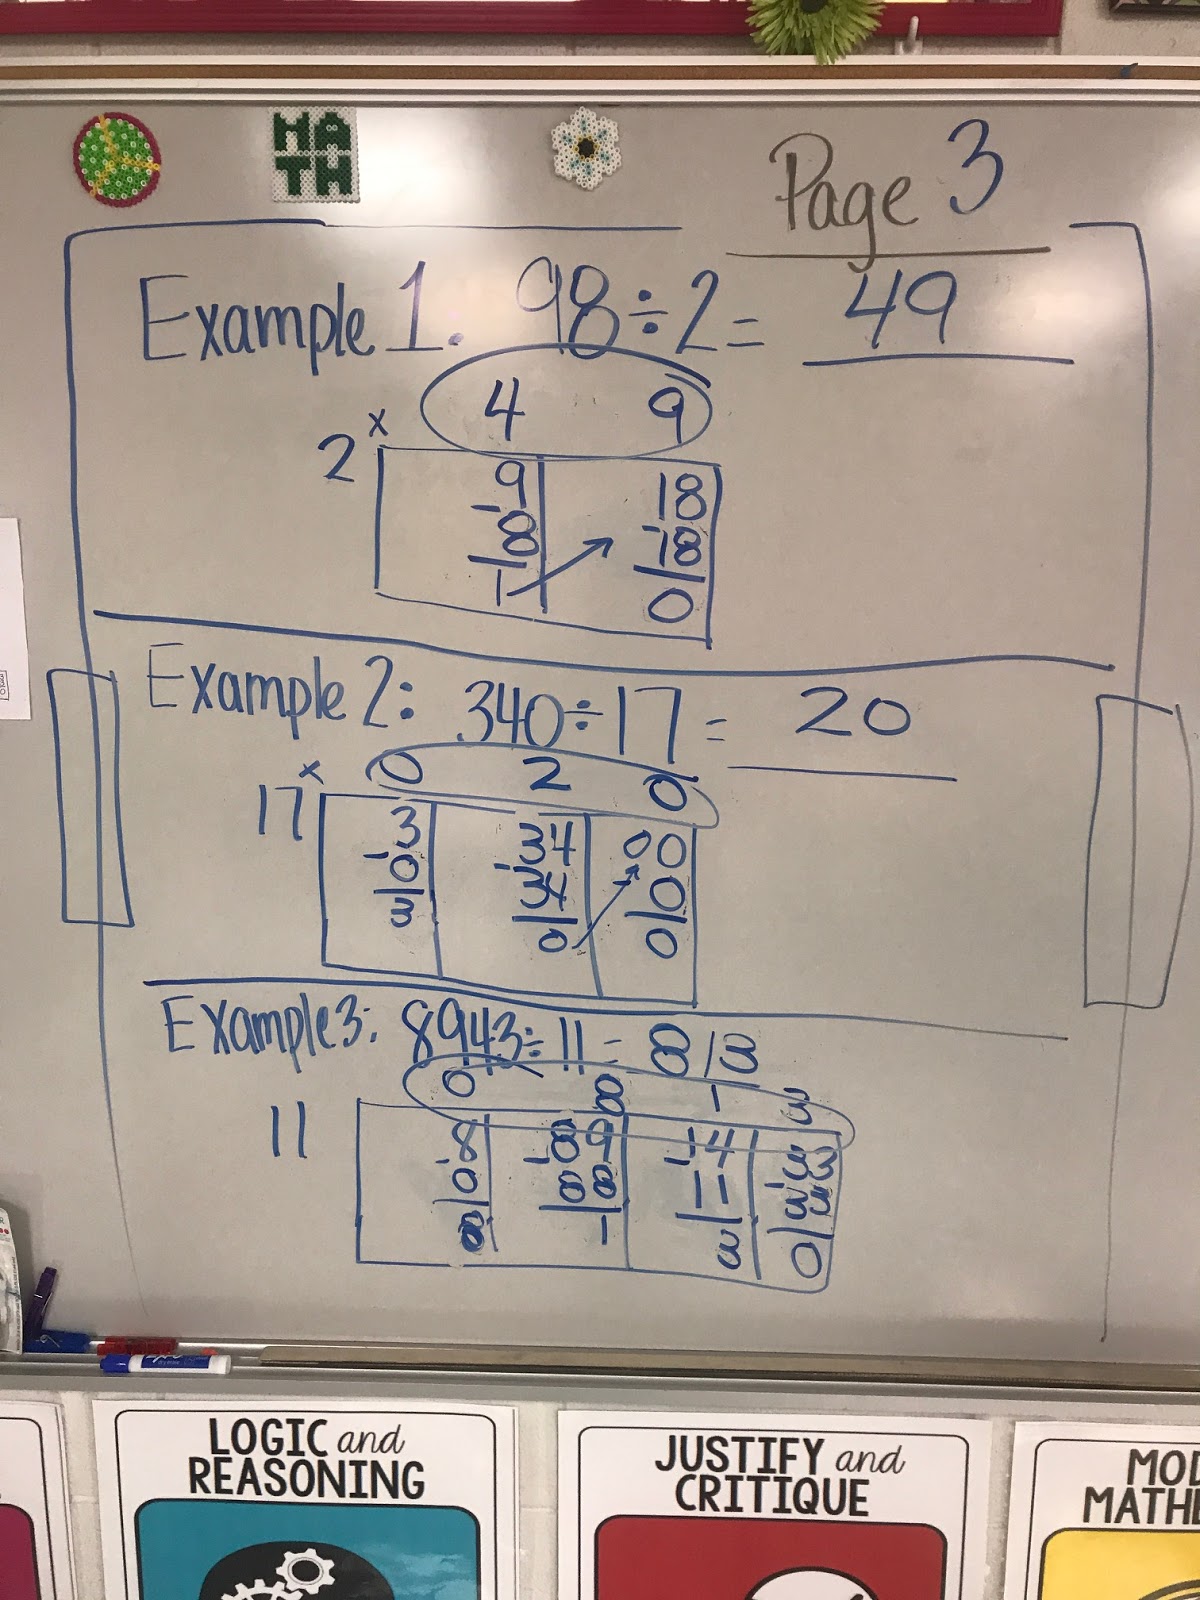 MA
TH
Page 3
Example 1. 98÷2= 49
4 9
2 x
9 18
-8 -18
1 0
Example 2: 340÷17 = 20
0 2 0
17 x
3 34 00
-0 -34 00
3 0 0
Example 3: 8943÷11= 813
0 8 1 3
11
8 89 14 33
-0 -88 -11 -33
8 1 3 0
LOGIC and
REASONING
JUSTIFY and
CRITIQUE
MOD
MATHE